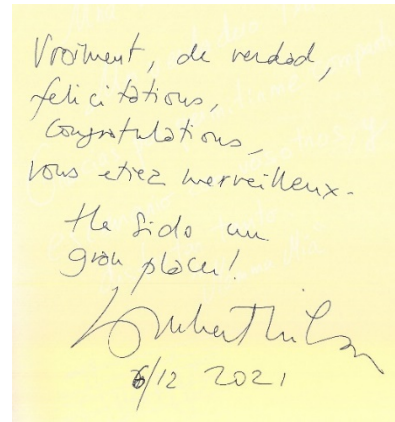 Vraiment, de verdad,
felicitations,
congratulations,
vous etiez merveilleux.
Ha sido un
gran placer!
Lambert Wilson
6/12 2021